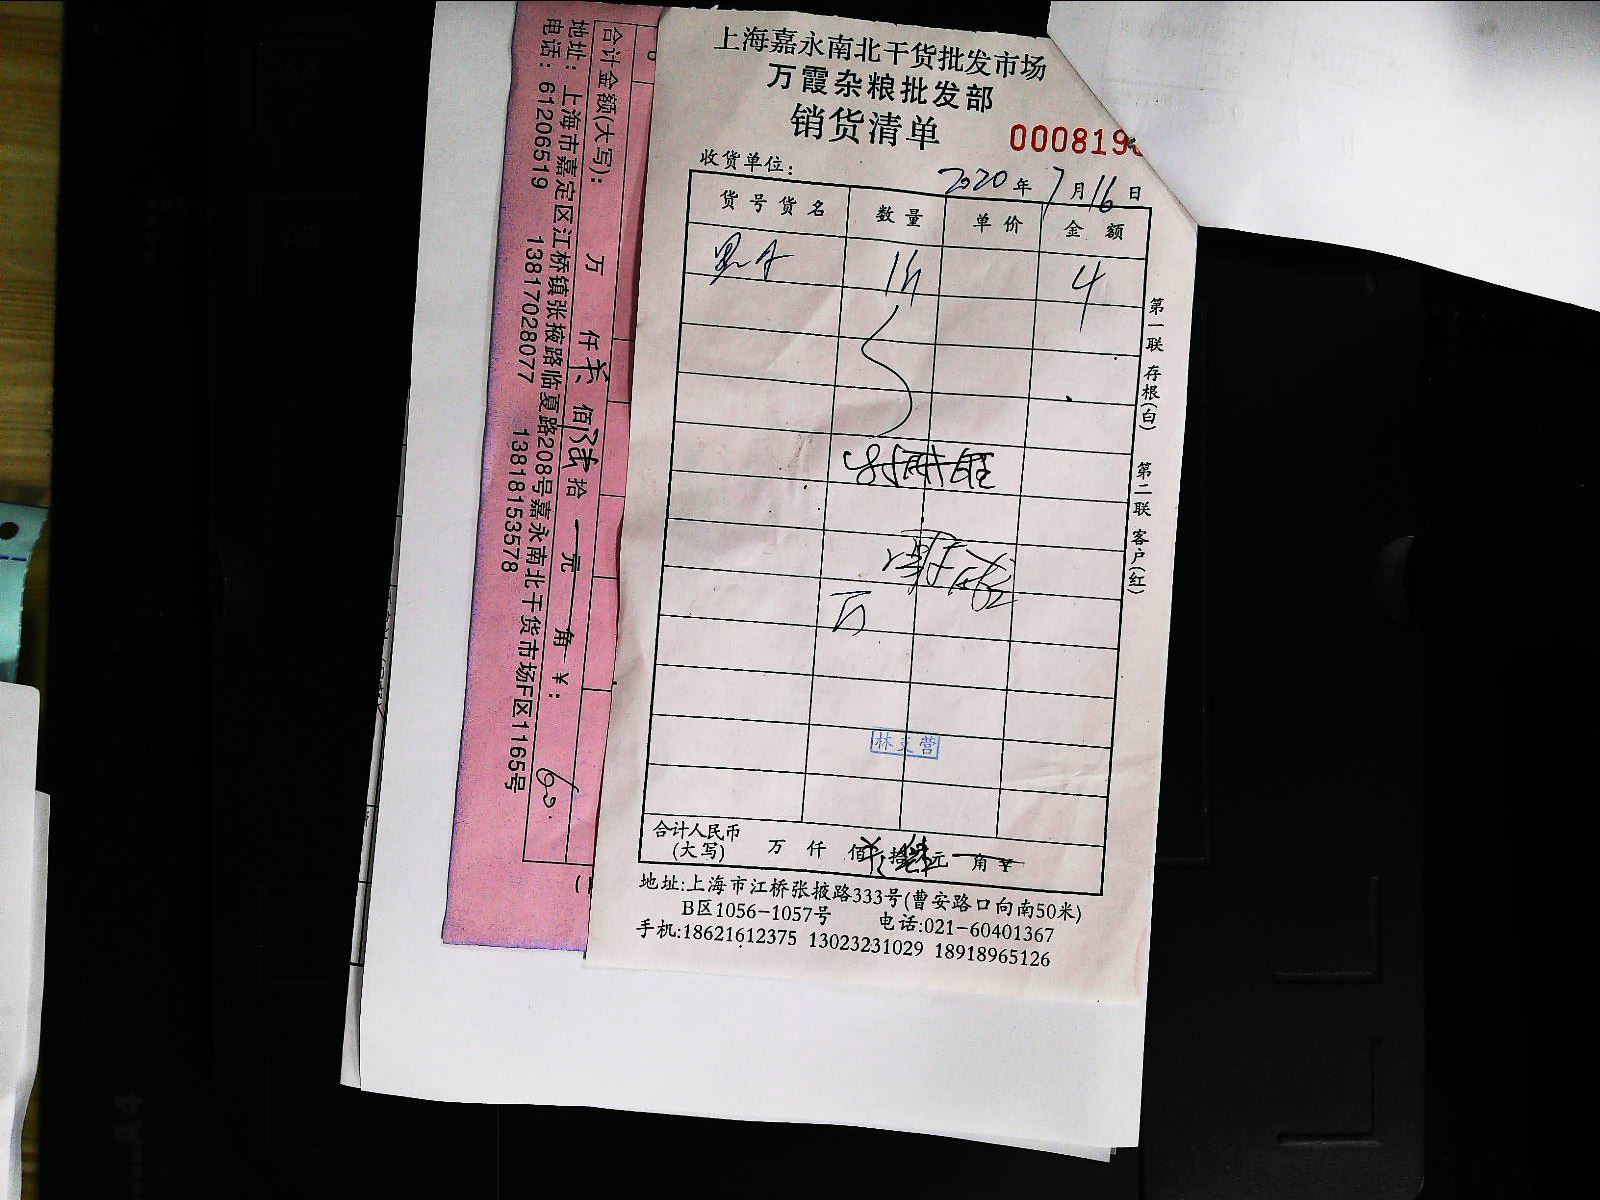 上海嘉永南北干货批发市场
万霞杂粮批发部
销货清单
000819
收货单位：
2020年7月16日
货号货名 数量 单价 金额
4
林 营
合计人民币
(大写) 万 仟 佰 拾 元 角 ¥
地址:上海市江桥张掖路333号(曹安路口向南50米)
B区1056-1057号 电话:021-60401367
手机:18621612375 13023231029 18918965126
第一联 存根(白) 第二联 客户(红)
合计金额(大写): 万 仟 佰陆拾 元 角 ¥: 60
地址: 上海市嘉定区江桥镇张掖路临夏路208号嘉永南北干货市场F区1165号
电话: 61206519 13817028077 13818153578
A4